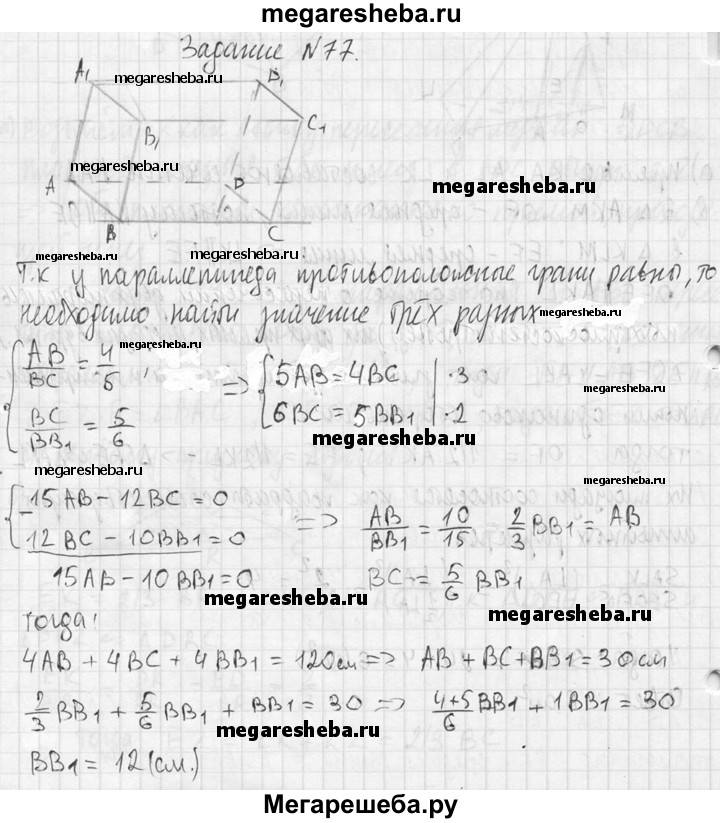 megaresheba.ru
Задание N77.
A₁ megaresheba.ru D₁
B₁ C₁
megaresheba.ru
A D megaresheba.ru
B C
megaresheba.ru megaresheba.ru
Т.к у параллепипеда противоположные грани равны, то
необходимо найти значение трёх разных megaresheba.ru
{ AB/BC = 4/5, megaresheba.ru => { 5AB = 4BC | ·3
BC/BB₁ = 5/6 6BC = 5BB₁ | ·2
megaresheba.ru
megaresheba.ru
megaresheba.ru megaresheba.ru
{ 15AB - 12BC = 0
12BC - 10BB₁ = 0 => AB/BB₁ = 10/15 2/3 BB₁ = AB
15AB - 10BB₁ = 0 BC = 5/6 BB₁
megaresheba.ru megaresheba.ru
тогда:
4AB + 4BC + 4BB₁ = 120см => AB + BC + BB₁ = 30см
2/3 BB₁ + 5/6 BB₁ + BB₁ = 30 => (4+5)/6 BB₁ + 1BB₁ = 30
megaresheba.ru
BB₁ = 12(см.)
Мегарешеба.ру